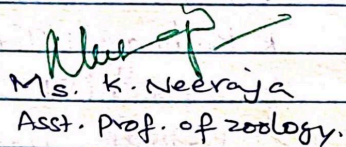 Ms. K. Neeraja
Asst. prof. of zoology.